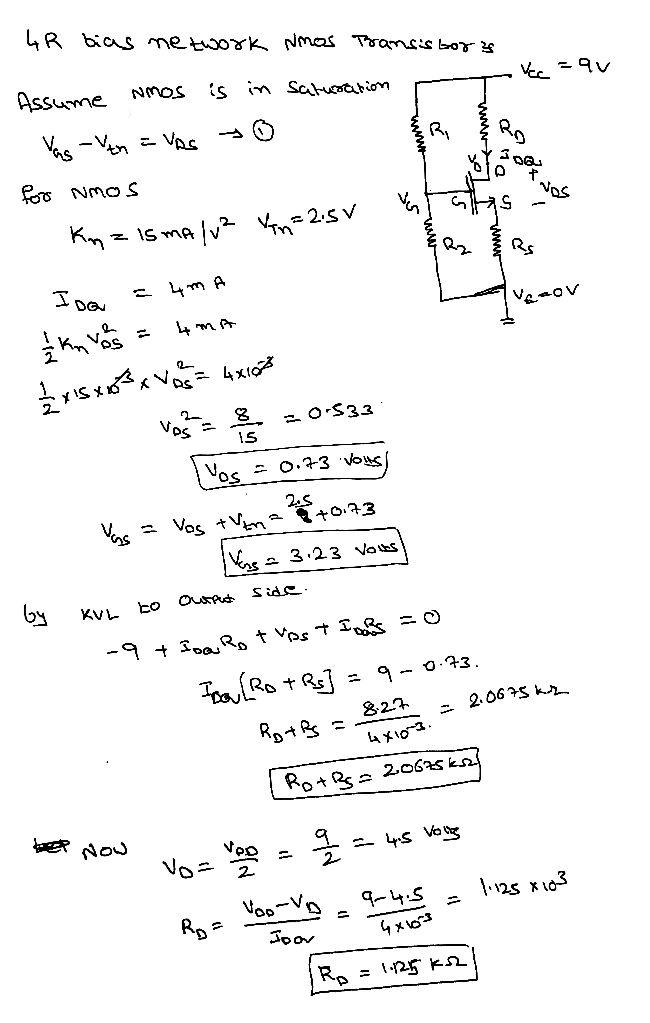 4R bias network NMOS Transistor is
Assume NMOS is in Saturation
V_GS - V_tn = V_DS → ①
for NMOS
K_n = 15 mA/V² V_Tn = 2.5 V
I_DQ = 4 mA
1/2 K_n V_DS² = 4 mA
1/2 × 15 × 10⁻³ × V_DS² = 4×10⁻³
V_DS² = 8/15 = 0.533
V_DS = 0.73 Volts
V_GS = V_DS + V_tn = 2.5 + 0.73
V_GS = 3.23 Volts
by KVL to Output side.
-9 + I_DQ R_D + V_DS + I_DQ R_S = 0
I_DQ [R_D + R_S] = 9 - 0.73.
R_D + R_S = 8.27/4×10⁻³. = 2.0675 kΩ
R_D + R_S = 2.0675 kΩ
Now V_D = V_DD/2 = 9/2 = 4.5 Volts
R_D = V_DD - V_D/I_DQ = 9-4.5/4×10⁻³ = 1.125 × 10³
R_D = 1.125 KΩ
V_CC = 9V
R_1 R_D
V_D D I_DQ
+
V_G G S - V_DS
R_2 R_S
V_E = 0V